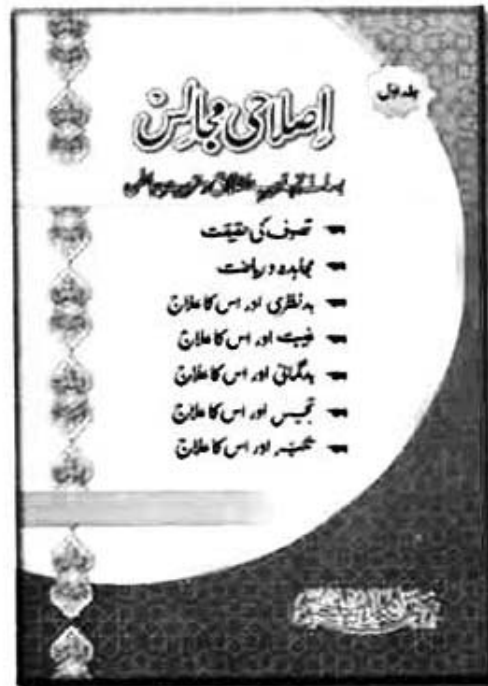 جلد اول
اصلاحی مجالس
تصوف کی حقیقت
مجاہدہ و ریاضت
بدنظری اور اس کا علاج
غیبت اور اس کا علاج
بدگمانی اور اس کا علاج
تجسس اور اس کا علاج
تکبر اور اس کا علاج